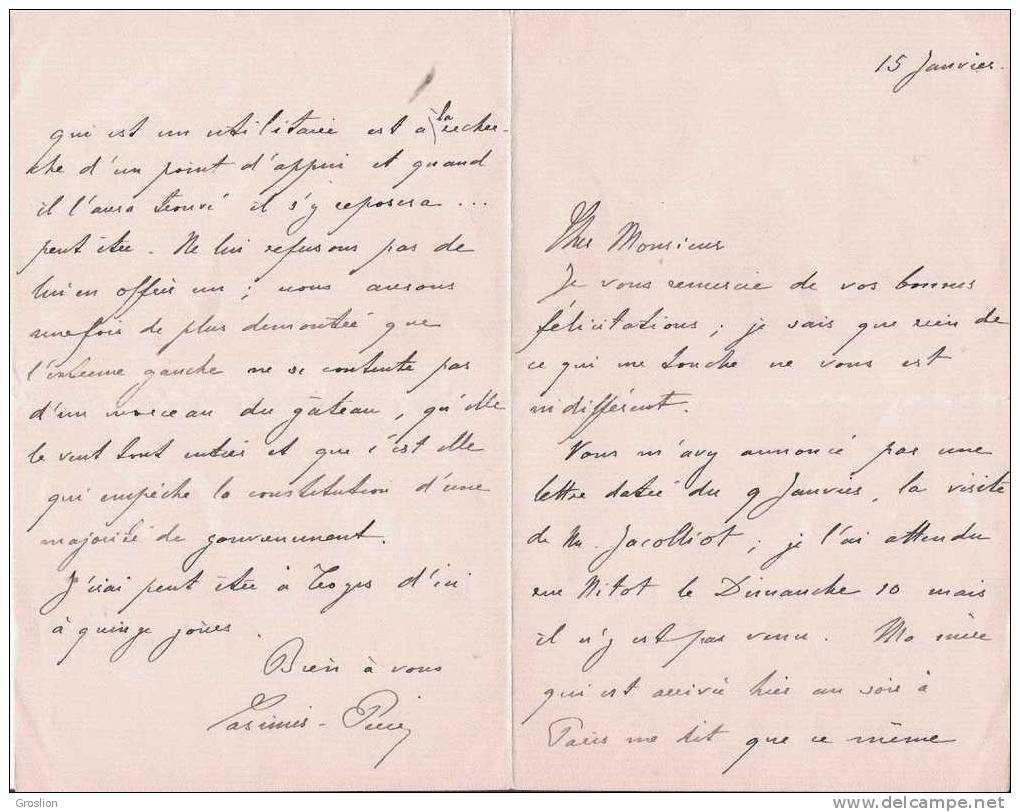 15 Janvier.
Cher Monsieur
Je vous remercie de vos bonnes
félicitations ; je sais que rien de
ce qui me touche ne vous est
indifférent.
Vous m'avez annoncé par une
lettre datée du 9 Janvier, la visite
de M. Jacolliot ; je l'ai attendu
rue Nitot le Dimanche 10 mais
il n'y est pas venu. Ma mère
qui est arrivée hier au soir à
Paris me dit que ce même
qui est un utilitaire est à la recher-
che d'un point d'appui et quand
il l'aura trouvé il s'y reposera ...
peut être. Ne lui refusons pas de
lui en offrir un ; nous aurons
une fois de plus démontré que
l'extrême gauche ne se contente pas
d'un morceau du gâteau, qu'elle
le veut tout entier et que c'est elle
qui empêche la constitution d'une
majorité de gouvernement.
J'irai peut être à Troyes d'ici
à quinze jours.
Bien à vous
Casimir-Perier
Groslion
www.delcampe.net